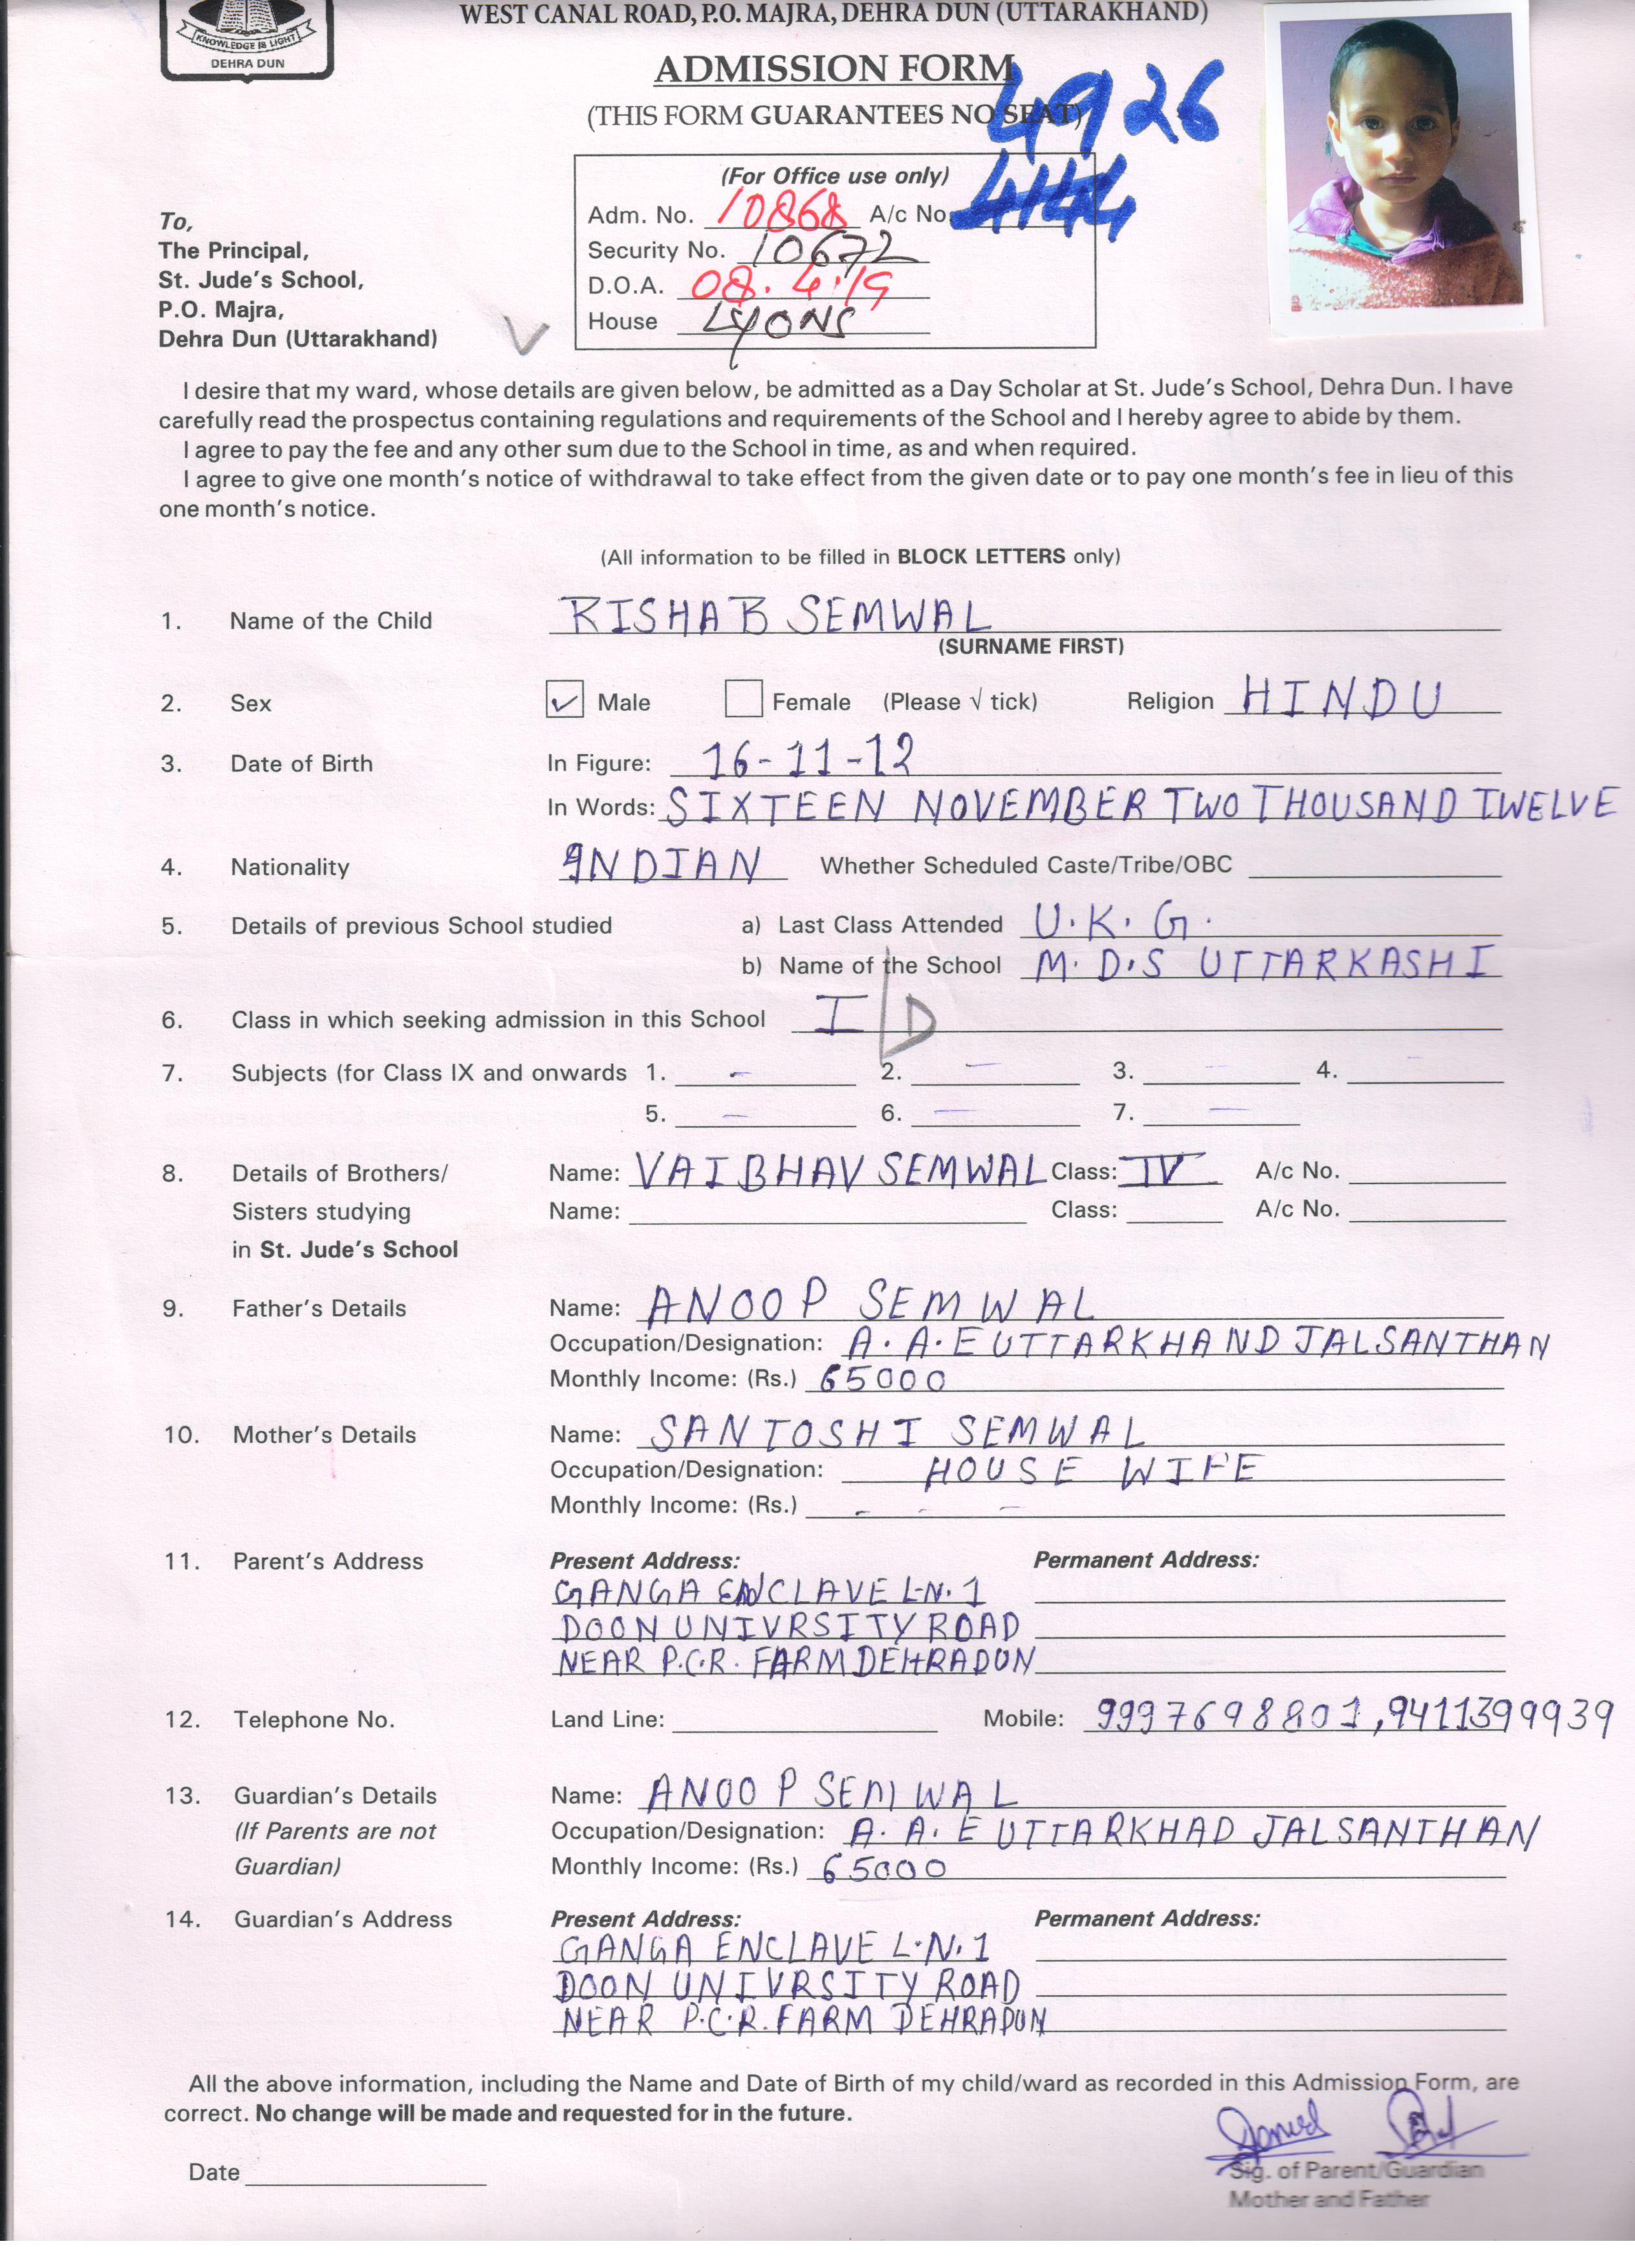 KNOWLEDGE IS LIGHT
DEHRA DUN
WEST CANAL ROAD, P.O. MAJRA, DEHRA DUN (UTTARAKHAND)
ADMISSION FORM
(THIS FORM GUARANTEES NO SEAT)
4926
(For Office use only)
Adm. No. 10868 A/c No. 4144
Security No. 10672
D.O.A. 08.4.19
House LYONS
To,
The Principal,
St. Jude's School,
P.O. Majra,
Dehra Dun (Uttarakhand)
I desire that my ward, whose details are given below, be admitted as a Day Scholar at St. Jude's School, Dehra Dun. I have
carefully read the prospectus containing regulations and requirements of the School and I hereby agree to abide by them.
I agree to pay the fee and any other sum due to the School in time, as and when required.
I agree to give one month's notice of withdrawal to take effect from the given date or to pay one month's fee in lieu of this
one month's notice.
(All information to be filled in BLOCK LETTERS only)
1. Name of the Child RISHAB SEMWAL
(SURNAME FIRST)
2. Sex ✓ Male Female (Please √ tick) Religion HINDU
3. Date of Birth In Figure: 16-11-12
In Words: SIXTEEN NOVEMBER TWO THOUSAND TWELVE
4. Nationality INDIAN Whether Scheduled Caste/Tribe/OBC
5. Details of previous School studied a) Last Class Attended U.K.G.
b) Name of the School M.D.S UTTARKASHI
6. Class in which seeking admission in this School I/D
7. Subjects (for Class IX and onwards 1. - 2. - 3. - 4. -
5. - 6. - 7. -
8. Details of Brothers/ Name: VAIBHAV SEMWAL Class: IV A/c No.
Sisters studying Name: Class: A/c No.
in St. Jude's School
9. Father's Details Name: ANOOP SEMWAL
Occupation/Designation: A.A.E UTTARKHAND JALSANTHAN
Monthly Income: (Rs.) 65000
10. Mother's Details Name: SANTOSHI SEMWAL
Occupation/Designation: HOUSE WIFE
Monthly Income: (Rs.) - - -
11. Parent's Address Present Address: Permanent Address:
GANGA ENCLAVE L.N.1
DOON UNIVRSITY ROAD
NEAR P.C.R. FARM DEHRADUN
12. Telephone No. Land Line: Mobile: 9997698801, 9411399939
13. Guardian's Details Name: ANOOP SEMWAL
(If Parents are not Occupation/Designation: A.A.E UTTARKHAD JALSANTHAN
Guardian) Monthly Income: (Rs.) 65000
14. Guardian's Address Present Address: Permanent Address:
GANGA ENCLAVE L.N.1
DOON UNIVRSITY ROAD
NEAR P.C.R. FARM DEHRADUN
All the above information, including the Name and Date of Birth of my child/ward as recorded in this Admission Form, are
correct. No change will be made and requested for in the future.
Date
Sig. of Parent/Guardian
Mother and Father